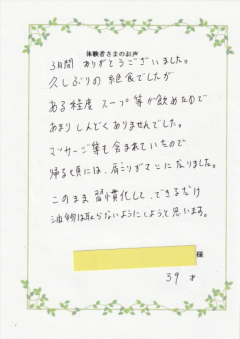 体験者さまのお声
3日間 ありがとうございました。
久しぶりの絶食でしたが
ある程度 スープ等が飲めたので
あまりしんどくありませんでした。
マッサージ等も含まれていたので
帰る頃には、肩こりがマシになりました。
このまま習慣化して、できるだけ
油物は取らないようにしようと思います。
様
39 才